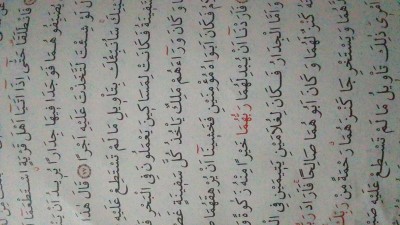 فَانْطَلَقَا حَتَّىٰ إِذَا أَتَيَا أَهْلَ قَرْيَةٍ اسْتَطْعَمَا
يُضَيِّفُوهُمَا فَوَجَدَا فِيهَا جِدَارًا يُرِيدُ أَنْ
لَوْ شِئْتَ لَتَّخَذْتَ عَلَيْهِ أَجْرًا ﴿٧٧﴾ قَالَ هٰذَا
سَأُنَبِّئُكَ بِتَأْوِيلِ مَا لَمْ تَسْتَطِعْ عَلَيْهِ
فَكَانَتْ لِمَسَاكِينَ يَعْمَلُونَ فِي الْبَحْرِ
وَكَانَ وَرَاءَهُمْ مَلِكٌ يَأْخُذُ كُلَّ سَفِينَةٍ
فَكَانَ أَبَوَاهُ مُؤْمِنَيْنِ فَخَشِينَا أَنْ يُرْهِقَهُمَا
فَأَرَدْنَا أَنْ يُبْدِلَهُمَا رَبُّهُمَا خَيْرًا مِنْهُ زَكٰوةً
وَأَمَّا الْجِدَارُ فَكَانَ لِغُلَامَيْنِ يَتِيمَيْنِ فِي
كَنْزٌ لَهُمَا وَكَانَ أَبُوهُمَا صَالِحًا فَأَرَادَ
وَيَسْتَخْرِجَا كَنْزَهُمَا رَحْمَةً مِنْ رَبِّكَ
أَمْرِي ذٰلِكَ تَأْوِيلُ مَا لَمْ تَسْطِعْ عَلَيْهِ